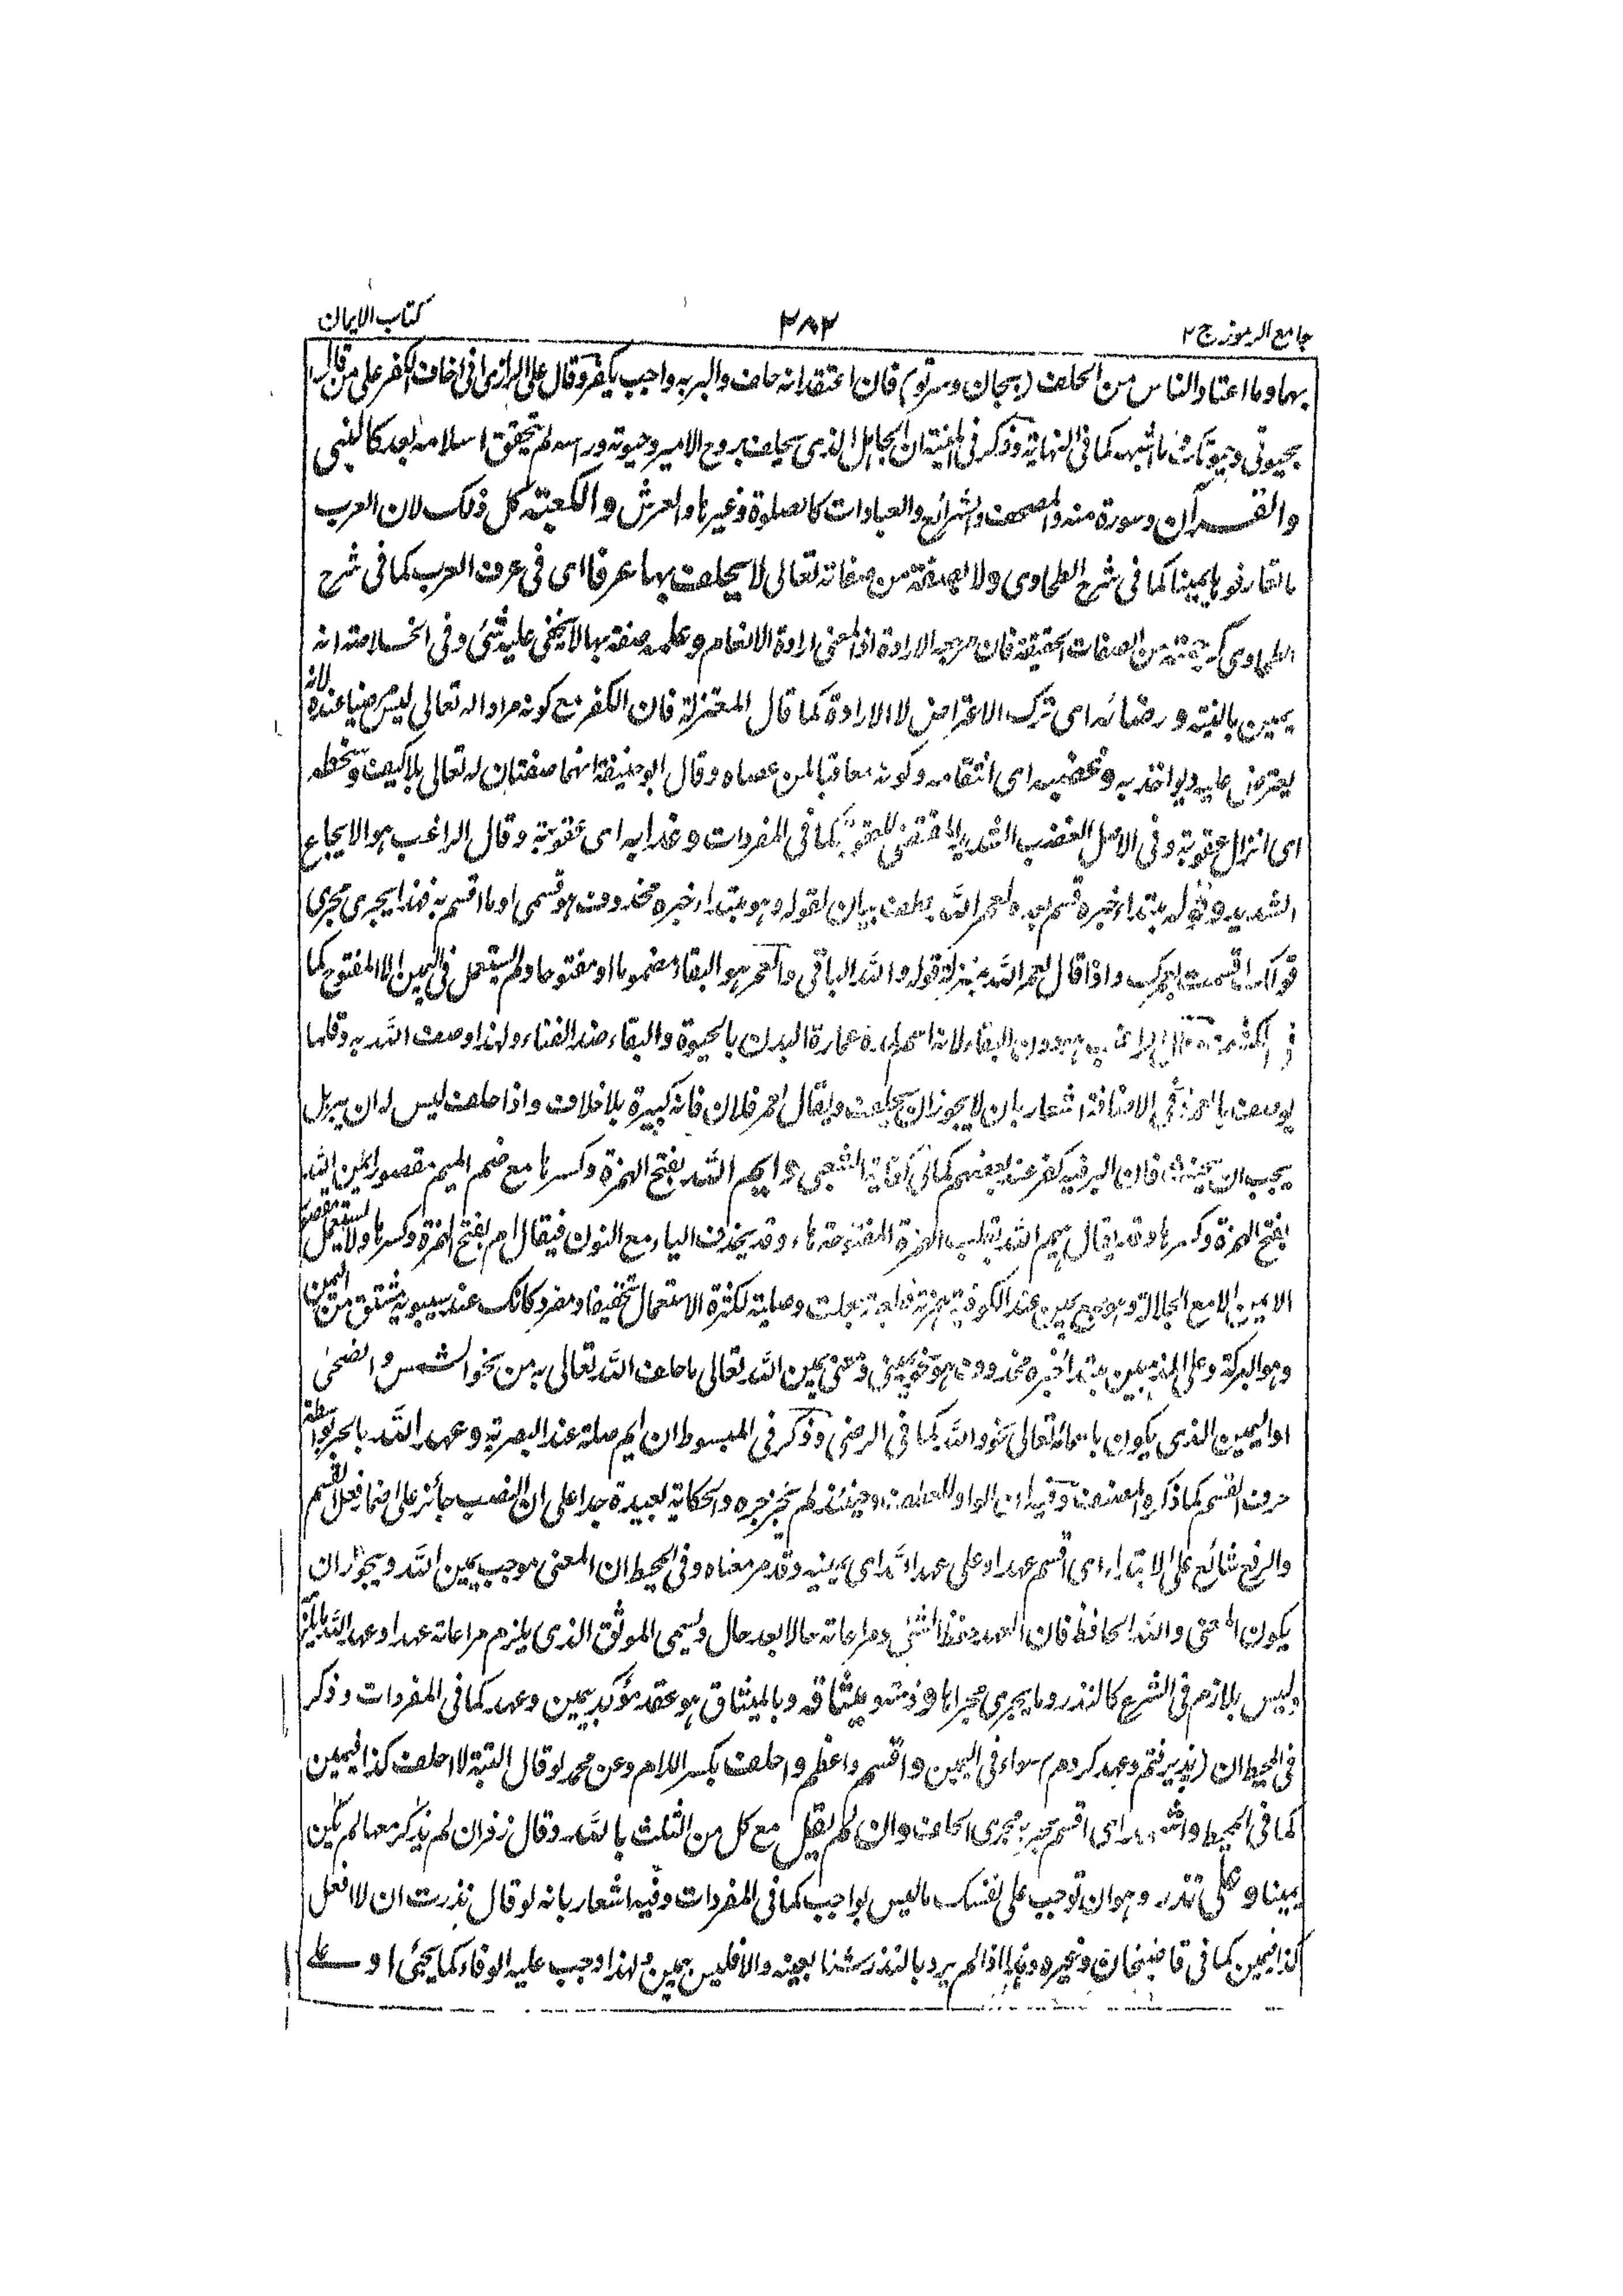 جامع الرموز ج ٢
٢٨٢
كتاب الايمان
بها وما اعتاد الناس من الحلف (بجان وسرتو) فان اعتقد انه حلف والبر به واجب يكفر وقال على الرازى انى اخاف الكفر على من قال
بحيوتى وحيوتك وما اشبهه كما فى النهاية وذكر فى المنية ان الجاهل الذى يحلف بروح الامير وحيوته وراسه لم يتحقق اسلامه بعد كالنبى
والقرآن وسورة منه والمصحف والشرائع والعبادات كالصلوة وغيرها والعرش والكعبة كل ذلك لان العرب
ما تعارفوها يمينا كما فى شرح الطحاوى ولا بصفة من صفاته تعالى لا يحلف بها عرفا اى فى عرف العرب كما فى شرح
الطحاوى كرحمته من الصفات الحقيقة فان مرجعه الارادة اذ المعنى ارادة الانعام وعلمه صفة بها لا يخفى عليه شئ وفى الخلاصة انه
يمين بالنية ورضائه اى ترك الاعتراض لا الارادة كما قال المعتزلة فان الكفر مع كونه مرادا له تعالى ليس مرضيا عنده لانه
يعترض عليه ويواخذ به وغضبه اى انتقامه وكونه معاقبا لمن عصاه وقال ابو حنيفة انهما صفتان له تعالى بلا كيف وسخطه
اى انزال عقوبة وفى الاصل الغضب الشديد المقتضى للعقوبة كما فى المفردات وعذابه اى عقوبة وقال الراغب هو الايجاع
الشديد وقوله مبتداء خبره قسم بعده لعمر الله بحلف بيان لقوله وهو مبتداء خبره محذوف هو قسمى او ما اقسم به فهذا يجرى مجرى
قولك اقسمت بعمرك واذا قال لعمر الله بمنزلة قوله والله الباقى والعمر هو البقاء مضموما او مفتوحا ولم يستعمل فى اليمين الا المفتوح كما
فى الكشف قال الراغب هو دون البقاء لانه اسم لمدة عمارة البدن بالحيوة والبقاء ضد الفناء ولهذا وصف الله به وقلما
يوصف بالعمر وفى الاضافة اشعار بان لا يجوز ان يحلف ويقال لعمر فلان فانه كبيرة بلا خلاف واذا حلف ليس له ان يبر بل
يجب ان يحنث فان البر فيه كفر عند بعضهم كما فى كفاية الشعبى وايم الله بفتح الهمزة وكسرها مع ضم الميم مقصور ايمن الله
بفتح الهمزة وكسرها وقد يقال هيم الله بقلب الهمزة المفتوحة هاء وقد يحذف الياء مع النون فيقال ام بفتح الهمزة وكسرها ولا يستعمل مقصور
الايمن الا مع الجلالة وهو جمع يمين عند الكوفية همزته قطعية جعلت وصلية لكثرة الاستعمال تخفيفا ومفرد كانك عند سيبويه مشتق من اليمن
وهو البركة وعلى المذهبين مبتداء خبره محذوف هو نحو يمينى ومعنى يمين الله تعالى ما حلف الله تعالى به من نحو الشمس والضحى
او اليمين الذى يكون باسمائه تعالى نحو والله كما فى الرضى وذكر فى المبسوط ان ايم صلة عند البصرية وعهد الله بالجر بواسطة
حرف القسم كما ذكره المصنف وفيه ان الواو للعطف وحينئذ لم يجز جره والحكاية بعيدة جدا على ان النصب جائز على اضمار فعل القسم
والرفع شائع على الابتداء اى اقسم عهد او على عهد الله اى يمينه وقد مر معناه وفى المحيط ان المعنى موجب يمين الله ويجوز ان
يكون المعنى والله الحافظ فان العهد حفظ الشئ ومراعاته حالا بعد حال ويسمى الموثق الذى يلزم مراعاته عهدا وعهد الله ما يلزم
وليس بلازم فى الشرع كالنذر وما يجرى مجراها وذمته وميثاقه وبالميثاق هو عقد مؤكد بيمين وعهد كما فى المفردات وذكر
فى المحيط ان (پذيرفتم وعهد كردم) سواء فى اليمين واقسم واعظم واحلف بكسر اللام وعن محمد لو قال البتة لا احلف كذا فيمين
كما فى المحيط واشهد اى اقسم يجرى مجرى الحلف وان لم يقل مع كل من الثلث بالله وقال زفر ان لم يذكر معها لم يكن
يمينا وعلى نذر وهو ان توجب على نفسك ما ليس بواجب كما فى المفردات وفيه اشعار بانه لو قال نذرت ان لا افعل
كذا فيمين كما فى قاضيخان وغيره وهذا اذا لم يرد بالنذر شئا بعينه والا فليس بيمين ولهذا وجب عليه الوفاء كما يجئ او على